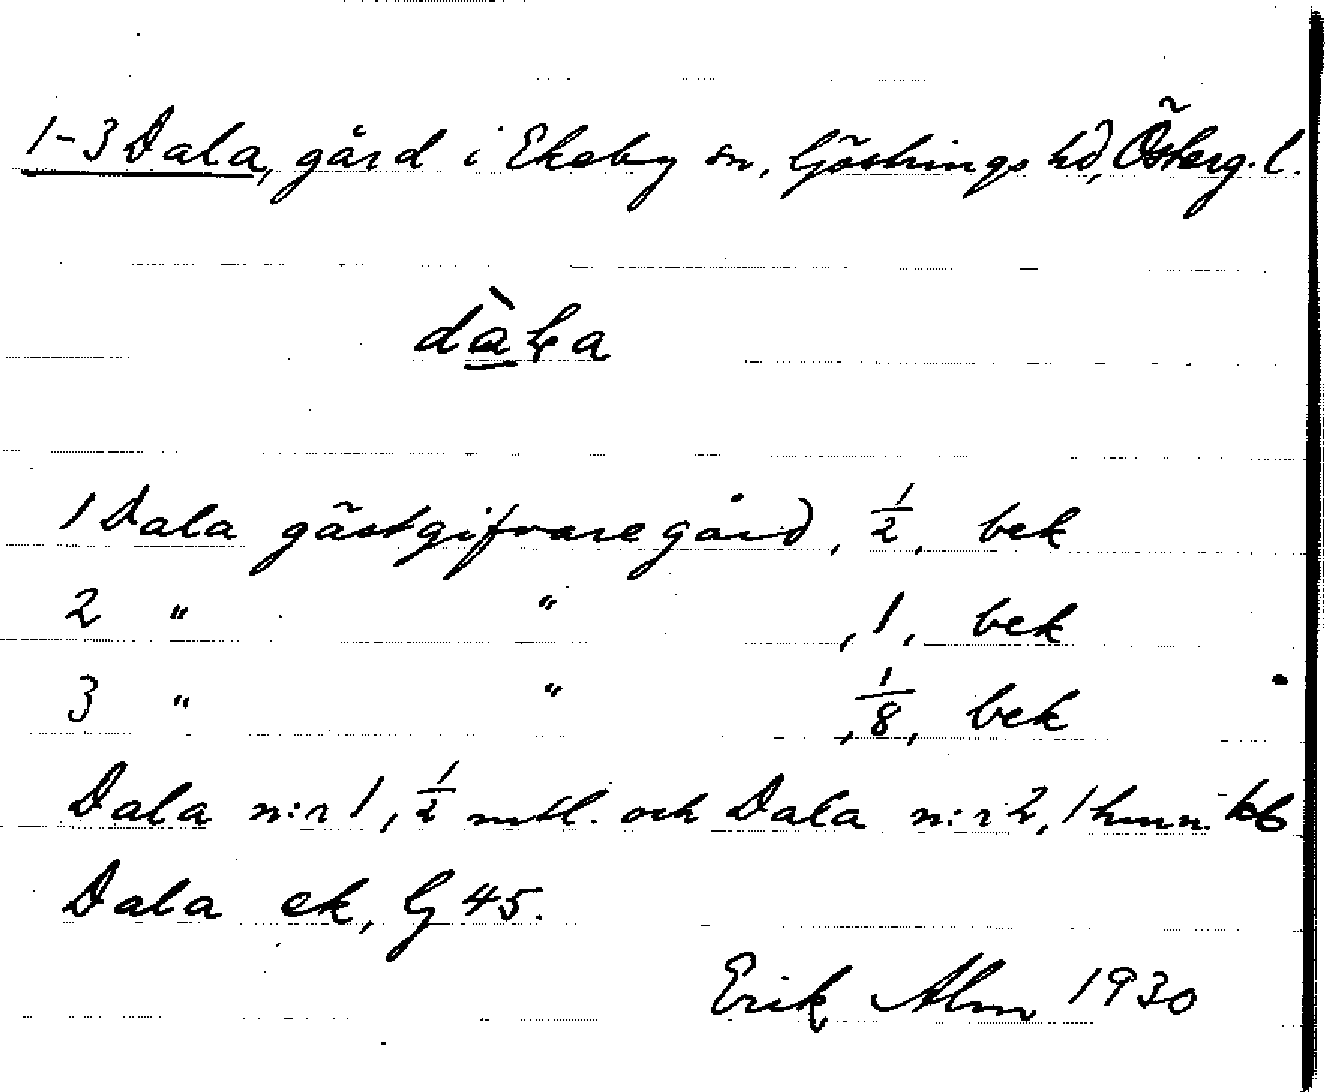 1-3 Dala, gård i Ekeby sn, Göstrings hd, Österg. l.
dàⱡa
1 Dala gästgifvaregård, 1/2, bek
2 " " , 1, bek
3 " " , 1/8, bek
Dala n:r 1, 1/2 mtl. och Dala n:r 2, 1 hmn.
Dala ek, G 45.
Erik Alm 1930